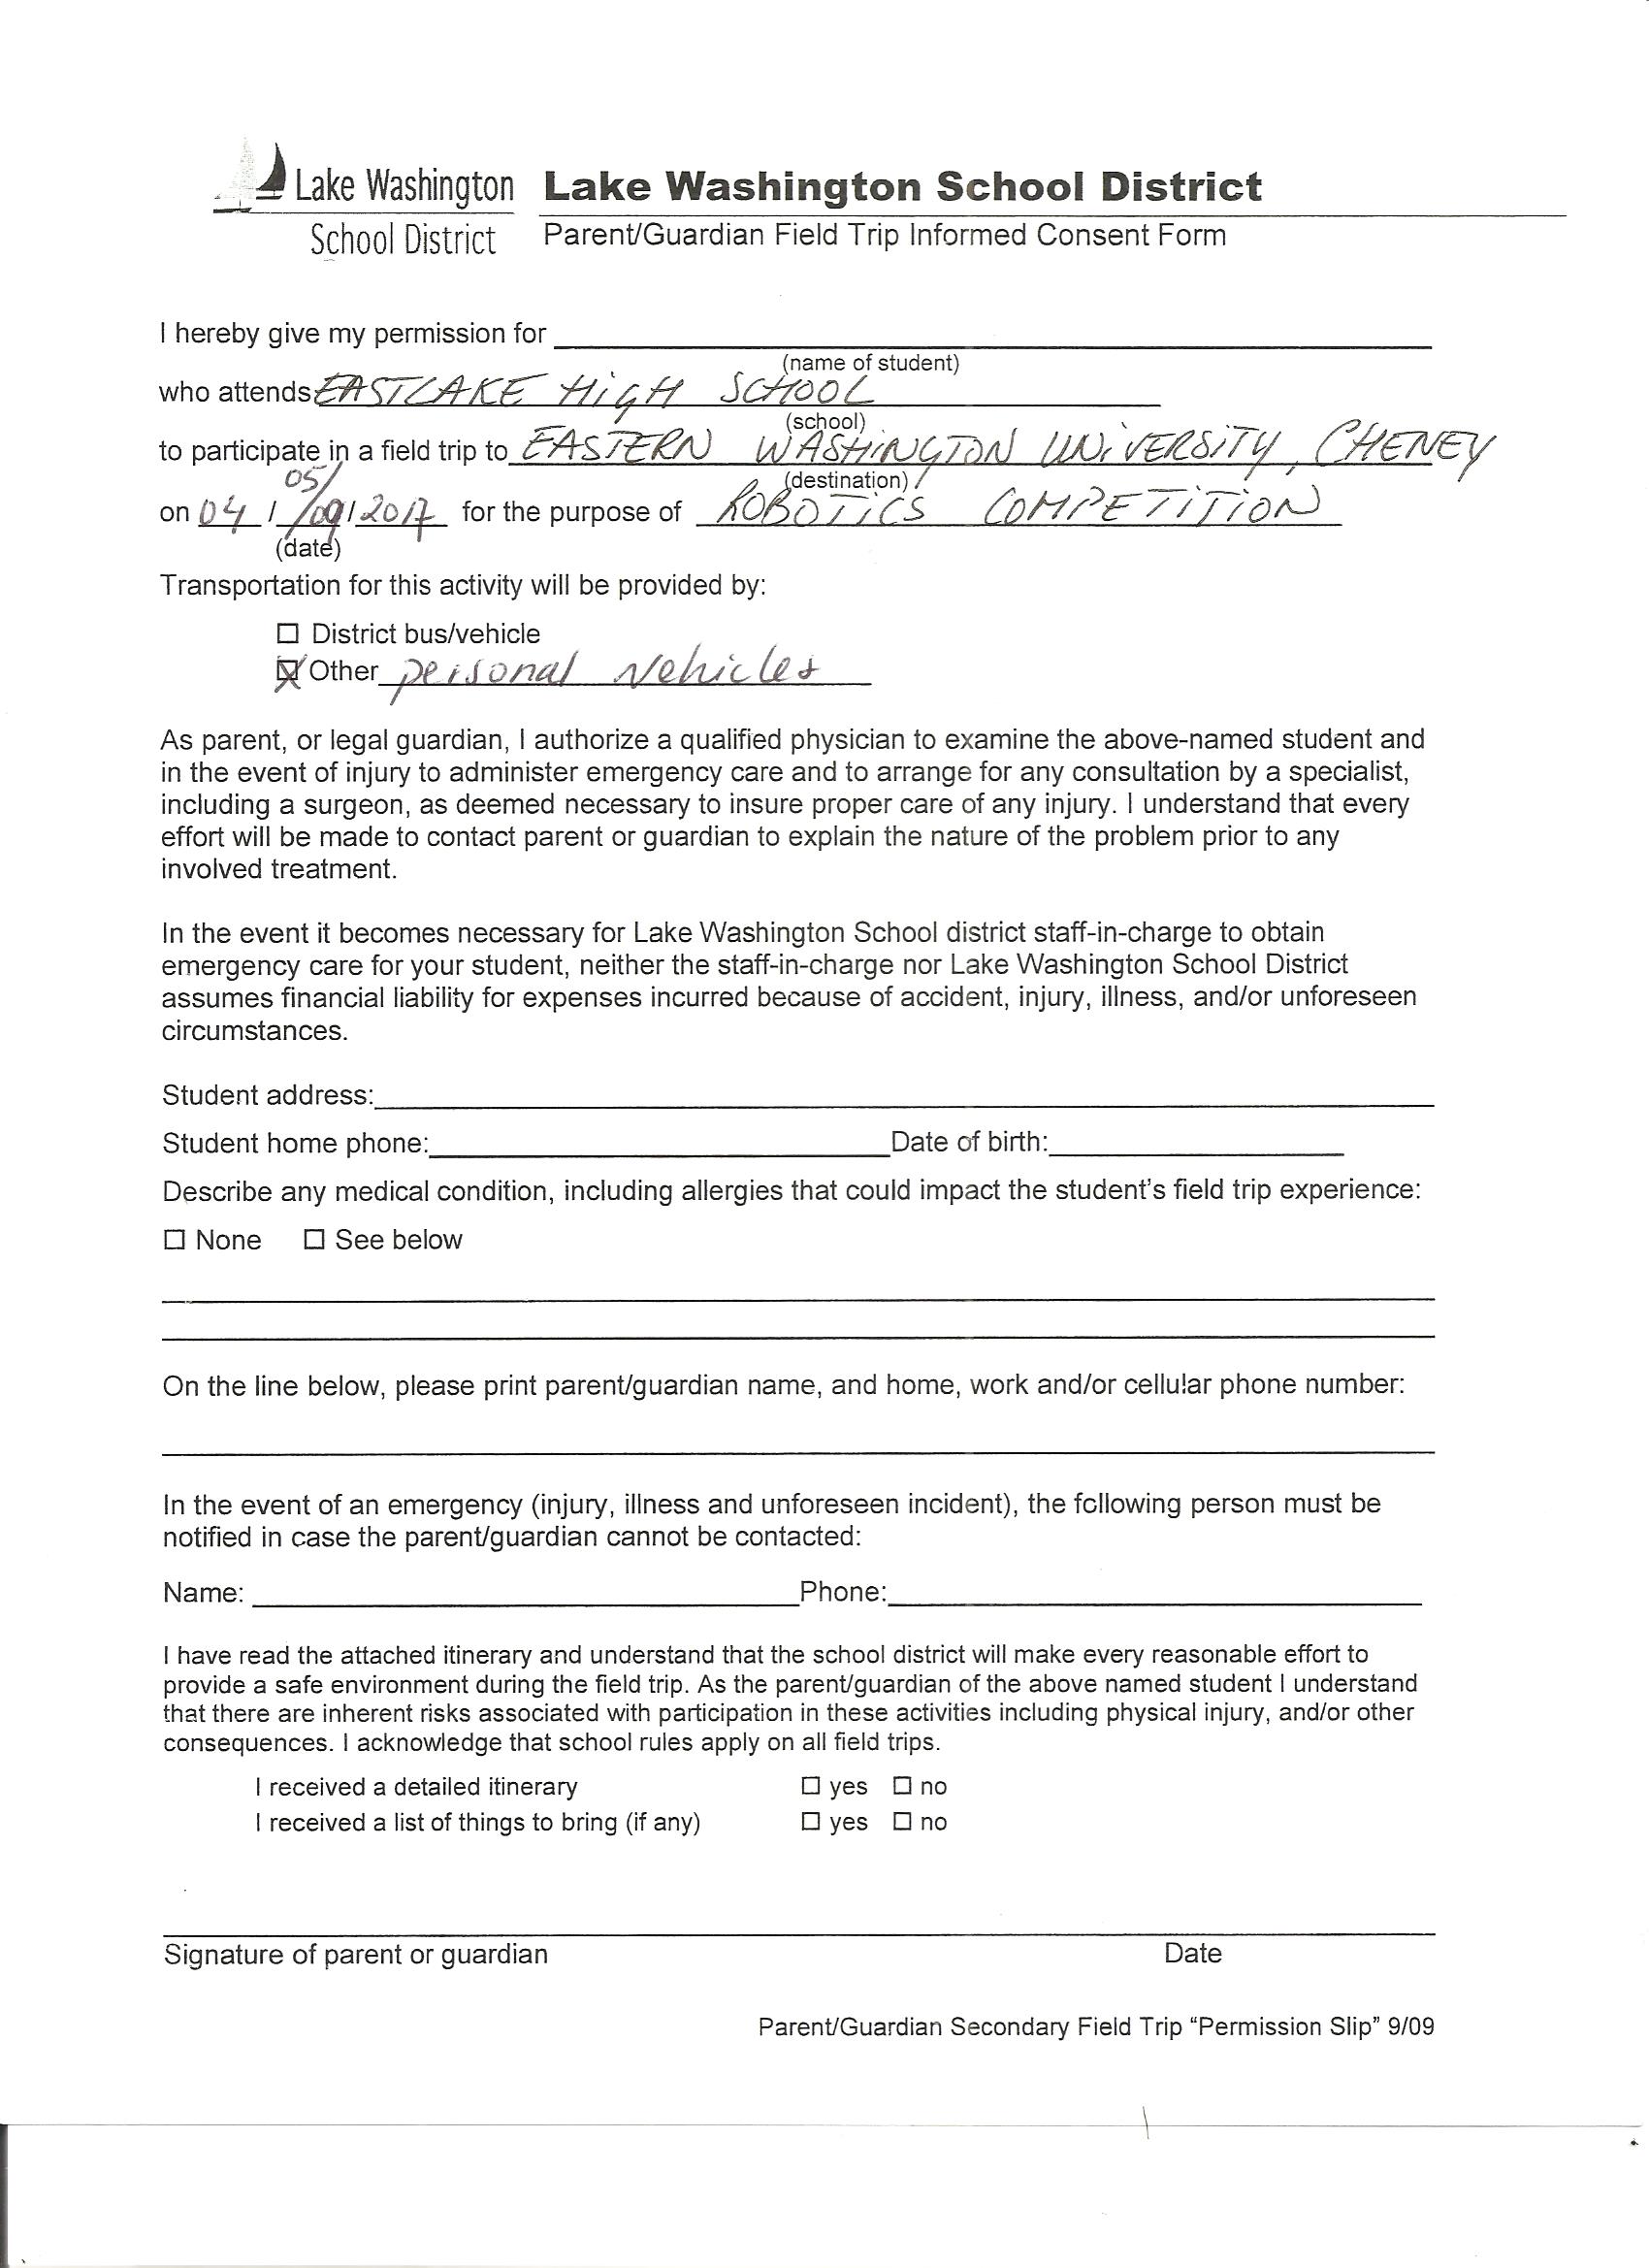 Lake Washington
School District
Lake Washington School District
Parent/Guardian Field Trip Informed Consent Form
I hereby give my permission for
(name of student)
who attends EASTLAKE HIGH SCHOOL
(school)
to participate in a field trip to EASTERN WASHINGTON UNIVERSITY, CHENEY
(destination)
on 04 / 05/09/2017 for the purpose of ROBOTICS COMPETITION
(date)
Transportation for this activity will be provided by:
☐ District bus/vehicle
☒ Other personal vehicles
As parent, or legal guardian, I authorize a qualified physician to examine the above-named student and
in the event of injury to administer emergency care and to arrange for any consultation by a specialist,
including a surgeon, as deemed necessary to insure proper care of any injury. I understand that every
effort will be made to contact parent or guardian to explain the nature of the problem prior to any
involved treatment.
In the event it becomes necessary for Lake Washington School district staff-in-charge to obtain
emergency care for your student, neither the staff-in-charge nor Lake Washington School District
assumes financial liability for expenses incurred because of accident, injury, illness, and/or unforeseen
circumstances.
Student address:
Student home phone: Date of birth:
Describe any medical condition, including allergies that could impact the student's field trip experience:
☐ None ☐ See below
On the line below, please print parent/guardian name, and home, work and/or cellular phone number:
In the event of an emergency (injury, illness and unforeseen incident), the following person must be
notified in case the parent/guardian cannot be contacted:
Name: Phone:
I have read the attached itinerary and understand that the school district will make every reasonable effort to
provide a safe environment during the field trip. As the parent/guardian of the above named student I understand
that there are inherent risks associated with participation in these activities including physical injury, and/or other
consequences. I acknowledge that school rules apply on all field trips.
I received a detailed itinerary ☐ yes ☐ no
I received a list of things to bring (if any) ☐ yes ☐ no
Signature of parent or guardian Date
Parent/Guardian Secondary Field Trip “Permission Slip” 9/09